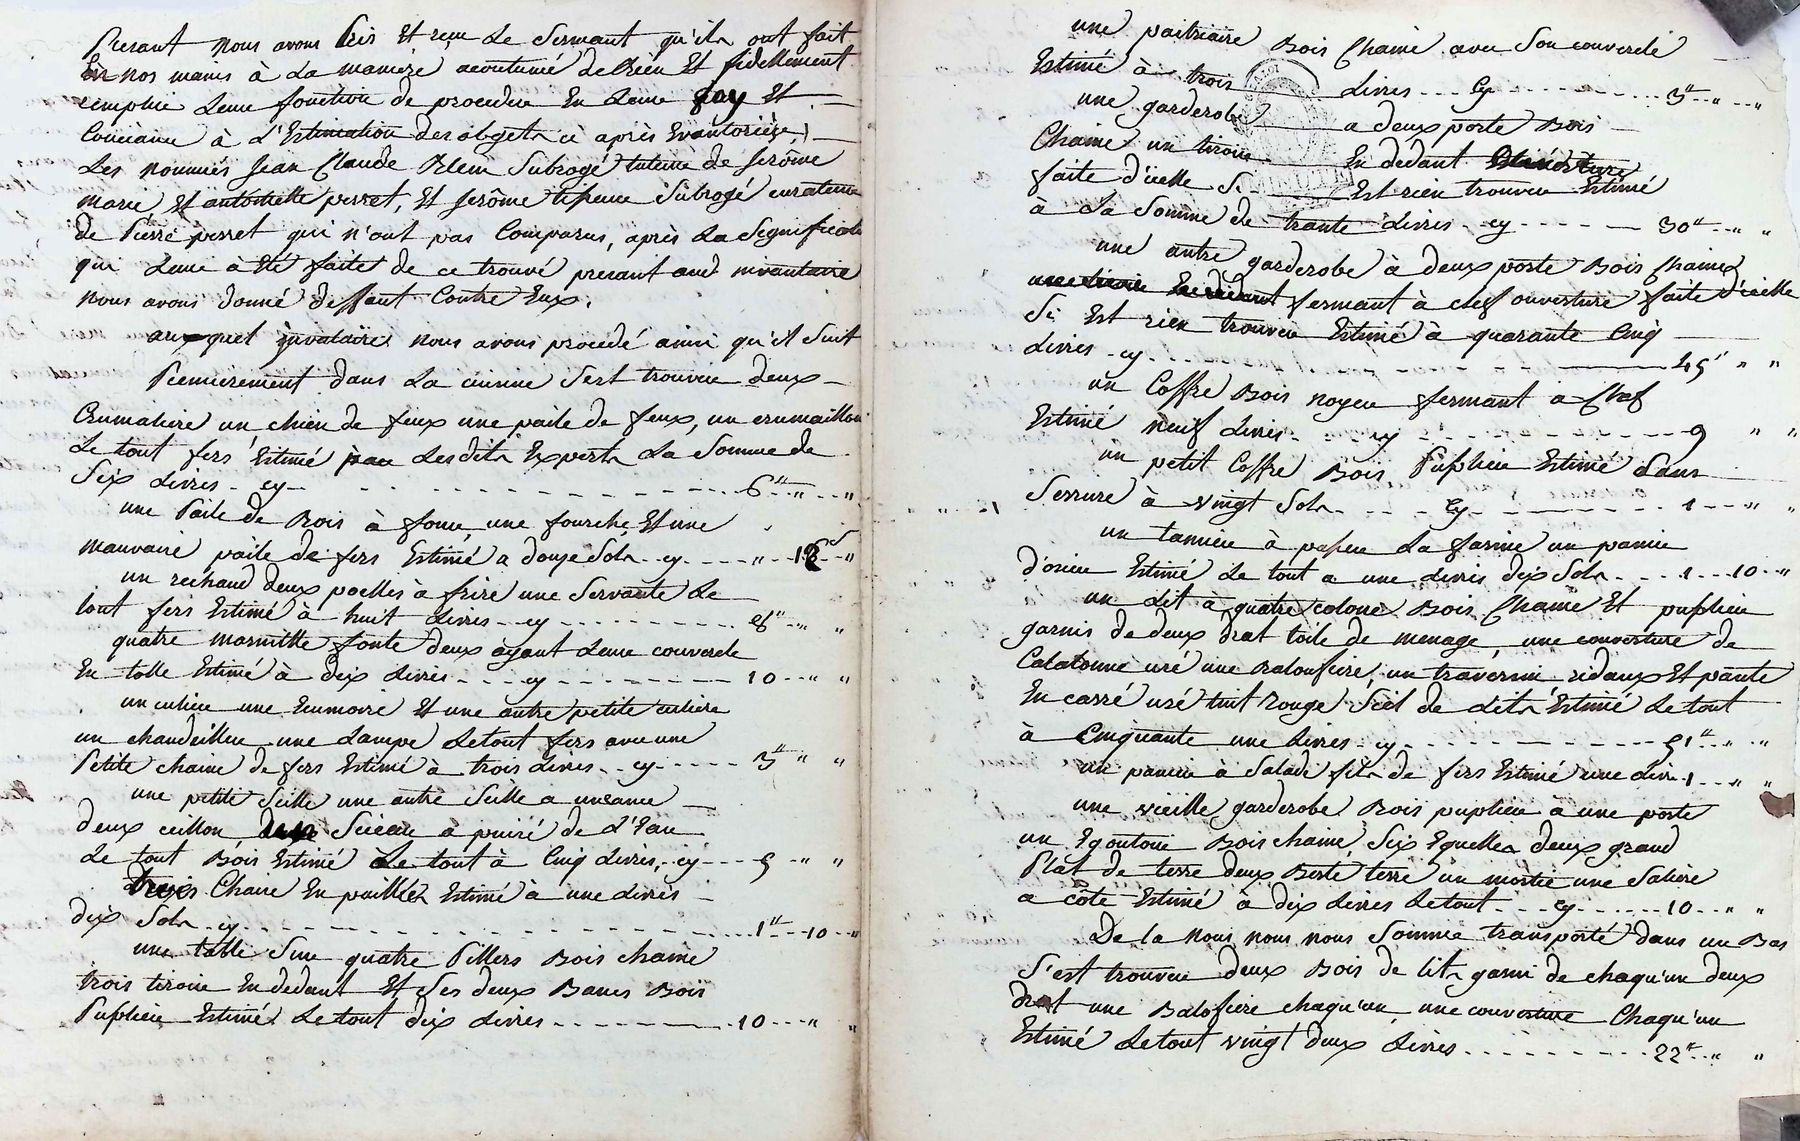 Presant nous avons pris Et reçu Le Sermant qu'ils ont fait
En nos mains à La maniere acoutumé de Bien Et fidellement
remplir Leur fonction de proceder En Leur foy Et
Conciance à L'Estimation des obgets ci après
Les nommés Jean Claude Subrogé tuteur de Jerôme
marie Et perret, Et Jerôme Subrogé curateur
de Pierre perret qui n'ont pas Comparus, après La Significat
qui Leur à Eté faite de ce trouvé presant aud invantaire
nous avons donné deffaut Contre Eux.
auxquel nous avons procedé ainsi qu'il Suit
Premierement dans La cuisine S'est trouvée deux
Crumaliere un chien de feux une paile de feux, un crumaillon
Le tout fers Estimé par Lesdits Experts La Somme de
Six Livres - cy 6
une Paile de Bois à four, une fourche, Et une
mauvaise paile de fers Estimé a douze Sols - cy " 12 "
un rechaud deux poelles à frire une Servante Le
tout fers Estimé à huit Livres - cy 8 " "
quatre marmitte fonte deux ayant Leur couvercle
En tolle Estimé à dix Livres cy 10 " "
un culiere une Ecumoire Et une autre petite culiere
un chandeillier une Lampe Le tout fers avec une
Petite chaine de fers Estimé à trois Livres cy 3 " "
une petite Seille une autre Seille a unsance
deux Sceau à puisé de L'Eau
Le tout Bois Estimé Le tout à Cinq Livres, cy 5 " "
Chaise En paillées Estimé à une Livres
dix Sols cy 1 10 "
une table Sur quatre Pillers Bois chaine
trois tiroir En dedant Et Ses deux Bancs Bois
Puplier Estimé Le tout dix Livres 10 " "
une paitriaire Bois Chaine avec Son couvercle
Estimé à trois Livres cy 3 " "
une garderobe a deux porte Bois
Chaine un tiroir En dedant
faite d'icelle S' Est rien trouvée Estimé
à La Somme de trante Livres cy 30 " "
une autre garderobe à deux porte Bois Chaine
fermant à clef ouverture faite d'icelle
S' Est rien trouvée Estimé à quarante Cinq
Livres cy 45 " "
un Coffre Bois noyer fermant à Claf
Estimé neuf Livres cy 9 " "
un petit Coffre Bois Puplier Estimé Sans
Serrure à vingt Sols cy 1 " "
un à passer La farine un panier
d'osier Estimé Le tout a une Livres dix Sols 1 10 "
un Lit à quatre colone Bois Chaine Et puplier
garnis de deux drat toile de menage, une couverture de
Catalonne usé une Baloufiere, un traversin ridaux Et pante
En carré usé tint Rouge Siel de Lits Estimé Le tout
à Cinquante une Livres cy 51 " "
un panier à Salade fils de fers Estimé une Livre 1 " "
une vieille garderobe Bois puplier à une porte
un Egoutoir Bois chaine Six Equelles deux grand
Plat de terre deux terre un mortier une Saliere
a coté Estimé à dix Livres Le tout cy 10 " "
De La nous nous nous Somme transporté dans un Bas
S'est trouvée deux Bois de lits garni de chaqu'un deux
drat une Balofiere chaqu'un, une couverture Chaqu'un
Estimé Le tout vingt deux Livres 22 " "